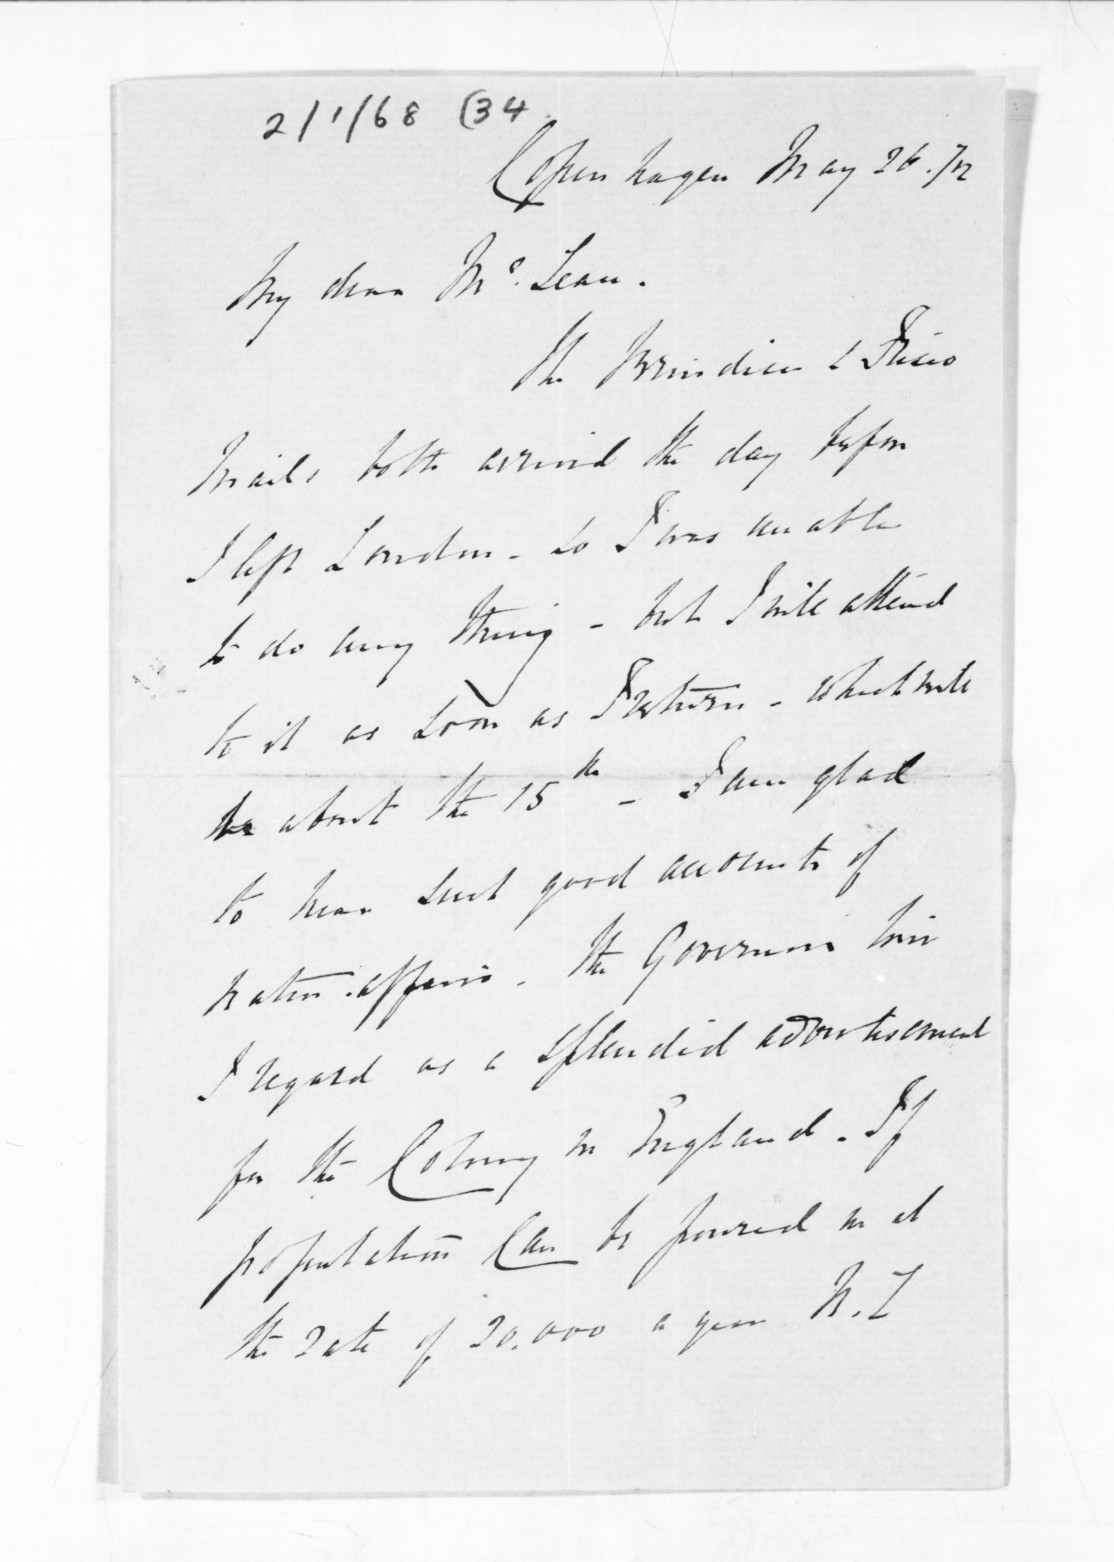 2/1/68 (34
Copenhagen May 26. /72
My dear McLean.
The Brindisi & Frisco
Mails both arrived the day before
I left London - so I was unable
to do any thing - but I will attend
to it as soon as I return - which will
be about the 15th - I am glad
to hear such good accounts of
native affairs. The Governors tour
I regard as a splendid advertisement
for the Colony in England. If
population can be poured in at
the rate of 20,000 a year N.Z